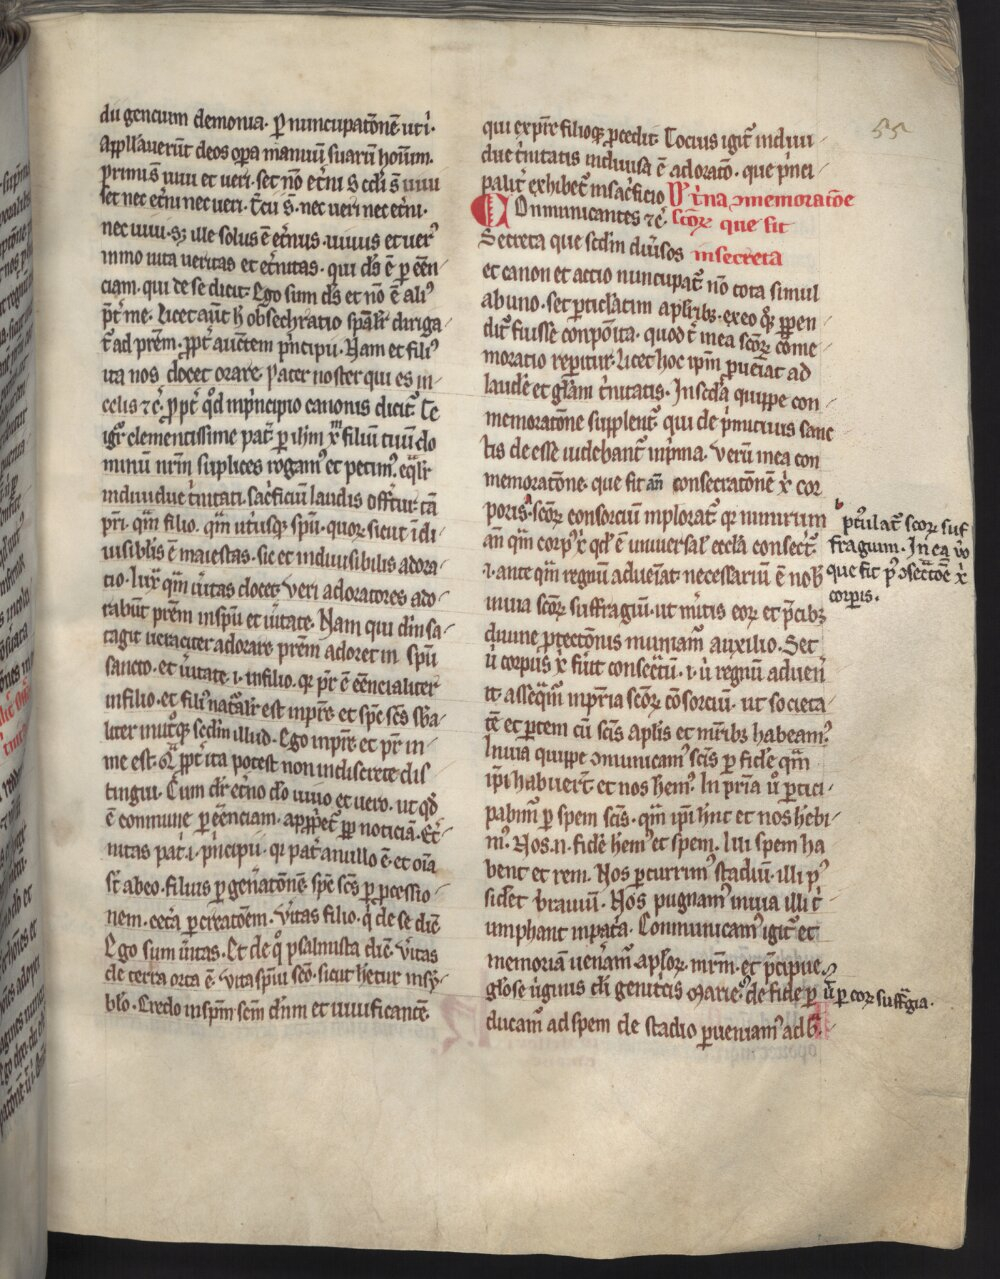 dii gencium demonia. ꝑ nuncupatōnē. uti.
Appll'auerūt deos oꝑa manuū suarū hoīum.
primi s̄ uiui et ueri. set nō et̄ni s̄ celi s̄ uiui
set nec et̄ni nec ueri. t̄cii s̄. nec ueri nec et̄ni.
nec uiui. sꝫ ille solus ē et̄nus. uiuus et uerꝰ
immo uita ueritas et et̄nitas. qui dꝰs ē ꝑ eēn
ciam. qui de se dicit. Ego sum dꝰs et nō ē aliꝰ
p̄t̄ me. Licet aūt h̄ obsecratio sp̄alr̄ diriga
t̄ ad pr̄em. ꝓpt̄ auctem p̄ncipii. Nam et filiꝰ
ita nos docet orare. Pater noster qui es in
celis ⁊c̄. ꝓpt̄ qd̄ in p̄ncipio canonis dicit̄. Te
igr̄ clementissime pat̄. ꝑ ihm̄ xp̄m filiū tuū do
minū nr̄m suplices rogamꝰ et petimꝰ. eq̄lr̄
indiuidue t̄nitati. sac̄ficiū laudis offt̄ur. tā
pr̄i. qm̄ filio. qm̄ ut̄iusqꝫ sp̄ui. quoꝝ sicut īdi
uisibilis ē maiestas. sic et indiuisibilis adora
tio. Iux̄ qm̄ ūitas docet. Veri adoratores ado
rabūt pr̄em in sp̄u et ūitate. Nam qui d̄m sa
tagit ueraciter adorare pr̄em adoret in sp̄u
sancto. et ūitate. i. in filio. qꝛ pr̄ ē eēncialiter
in filio. et filiꝰ nat̄alr̄ est in pr̄e. et sp̄c scs̄ sb̄a
liter in ut̄oqꝫ scd̄m illud. Ego in pr̄e et pr̄ in
me est. Qꝛ ꝓpt̄ ita potest non indiscrete dis
tingui. Cum dr̄ et̄no d̄o uiuo et uero. ut qd̄
ē commune ꝑ eēnciam. appp̄et̄ ꝑꝑ noticiā. Et̄
nitas pat̄i. i. p̄ncipii. qꝛ pat̄ a nullo ē. et oīa
s̄t ab eo. filius ꝑ gen̄atōnē. sp̄c scs̄ ꝑ ꝓcessio
nem. cet̄a ꝑ creatōem. V̄itas filio. q̄ de se dic̄
Ego sum ūitas. Et de qͦ psalmista dic̄. V̄itas
de terra orta ē. Vita sp̄iu sc̄o. sicut h̄etur in sȳ
blo. Credo in sp̄m scm̄ dn̄m et uiuificantē.
qui ex pr̄e filioqꝫ ꝓcedit. Tocius igit̄ indiui
due t̄nitatis indiuisa ē adoratō. que p̄nci
palit̄ exhibet̄ in sac̄ficio P̄ t̄na ↄmemoratōe
Communicantes ⁊c̄. scōꝝ que fit
Secreta que scd̄m diūsos in secreta
et canon et accio nuncupat̄. nō tota simul
ab uno. set ꝑticlatim a plr̄ibꝫ. ex eo qꝫ ꝑpen
dit̄ fuisse conpōita. quod t̄ in ea scōꝝ cōme
moratio repitur. Licet hoc ip̄m ꝑueīat ad
laudē et gl̄am t̄nitatis. In scd̄a quippe con
memoratōne supplent̄. qui de p̄mitiuis sanc
tis de esse uidebant̄ in p̄ma. Verū in ea con
memoratōne. que fit añ consecratōnē xp̄i cor
poris. scōꝝ consorciū inplorat̄. qꝛ nimirum
añ qm̄ corpꝰ xp̄i qd̄ ē uniuersal' eccl̄a consecr̄.
i. ante qm̄ regnū adueīat. necessariū ē nob̄
in uia scōꝝ suffragiū. ut m̄itis eoꝝ et p̄cibꝫ
diuine ꝓtectōnis muniam̄ auxilio. Set
ū corpus xp̄i fūit consec̄tū. i. ū regnū aduen̄
it. asseqm̄ in pr̄ia scōꝝ cōsorciū. ut societa
tē et ꝑtem cū scīs ap̄lis et m̄ribꝫ habeamꝰ.
In uia quippe ↄmunicamꝰ scīs ꝑ fidē qm̄
ip̄i habuer̄t. et nos hemꝰ. In pr̄ia ū ꝑtici
pabimꝰ ꝑ spem scīs. qm̄ ip̄i hn̄t et nos hēbi
mꝰ. Nos .n. fidē hemꝰ et spem. Illi spem ha
bent et rem. Nos ꝑcurrimꝰ stadiū. illi pꝰ
sidēt brauiū. Nos pugnamꝰ in uia illi t̄i
umphant in pat̄a. Communicamꝰ igit̄ et
memoriā uen̄amꝰ ap̄loꝝ. mr̄m. et p̄cipue
gl̄ose ūginis dī genitcis Marie. de fide ꝑ
ducamꝰ ad spem de stadio ꝑueniamꝰ ad b̄.
55
pꝰtulat̄ scōꝝ suf
fragium. In ea ūo
que fit pꝰ ↄsec̄tōē xp̄i
corpis.
ū ꝑ eoꝝ suff̄gia.